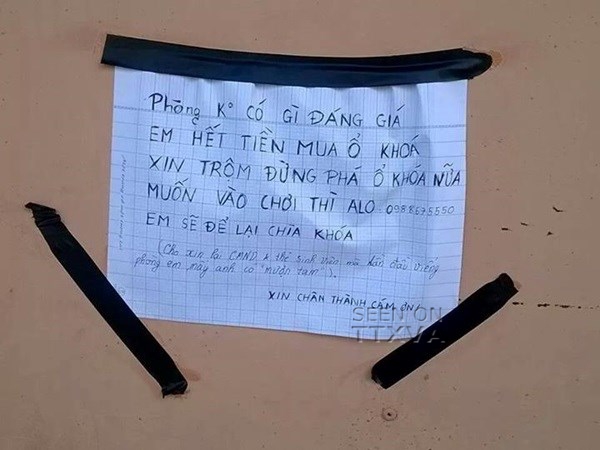 Phòng K° CÓ GÌ ĐÁNG GIÁ
EM HẾT TIỀN MUA Ổ KHOÁ
XIN TRÔM ĐỪNG PHÁ Ổ KHÓA NỮA
MUỐN VÀO CHƠI THÌ ALO 098.8575550
EM SẼ ĐỂ LẠI CHÌA KHÓA
(Cho xin lại CMND & thẻ sinh viên mà lần đầu viếng
phòng em mấy anh có "mượn tạm").
XIN CHÂN THÀNH CẢM ƠN!
SEEN ON
TTXVA